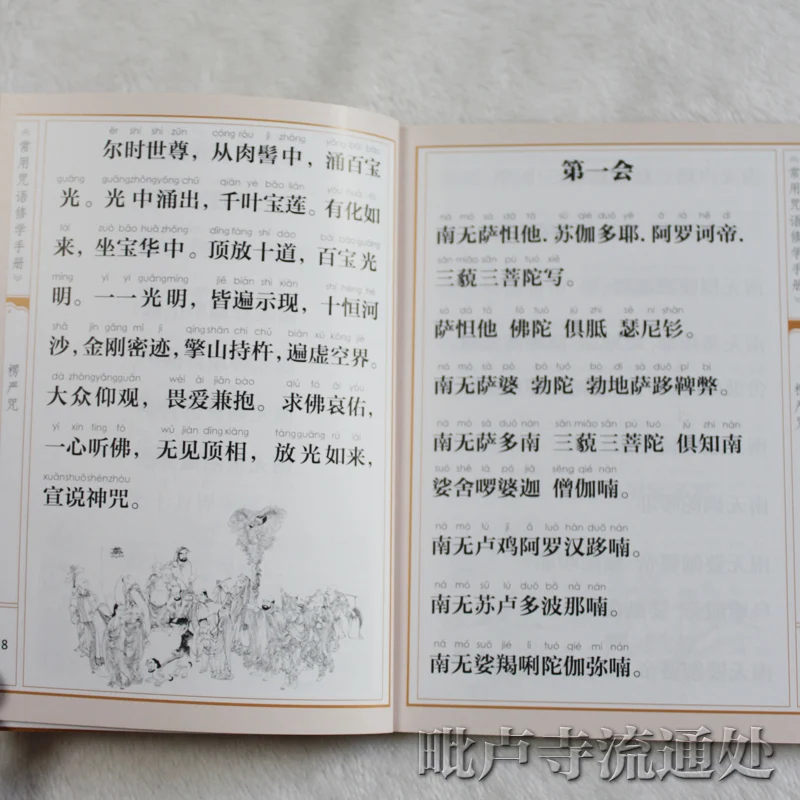 《常用咒语修学手册》
楞严咒
ěr shí shì zūn cóng ròu jì zhōng yǒng bǎi bǎo
尔时世尊，从肉髻中，涌百宝
guāng guāngzhōngyǒngchū qiān yè bǎo lián yǒu huà rú
光。光中涌出，千叶宝莲。有化如
lái zuò bǎo huā zhōng dǐng fàng shí dào bǎi bǎo guāng
来，坐宝华中。顶放十道，百宝光
míng yī yī guāngmíng jiē biàn shì xiàn shí héng hé
明。一一光明，皆遍示现，十恒河
shā jīn gāng mì jì qíng shān chí chǔ biàn xū kōng jiè
沙，金刚密迹，擎山持杵，遍虚空界。
dà zhòngyǎngguān wèi ài jiān bào qiú fó āi yòu
大众仰观，畏爱兼抱。求佛哀佑，
yī xīn tīng fó wú jiàn dǐng xiàng fàng guāng rú lái
一心听佛，无见顶相，放光如来，
xuānshuōshénzhòu
宣说神咒。
8
第一会
ná mó sà dá tā sū qié duō yē ā là hē dì
南无萨怛他．苏伽多耶．阿罗诃帝．
sān miǎo sān pú tuó xiě
三藐三菩陀写。
sà dá tā fó tuó jù zhī sè ní shān
萨怛他 佛陀 俱胝 瑟尼钐。
ná mó sà pó bó tuó bó dì sà duǒ pí bì
南无萨婆 勃陀 勃地萨跢鞞弊。
ná mó sà duō nán sān miǎo sān pú tuó jù zhī nán
南无萨多南 三藐三菩陀 俱知南
suō shě là pó jiā sēng qié nán
娑舍啰婆迦 僧伽喃。
ná mó lú jī ā luó hàn duǒ nán
南无卢鸡阿罗汉跢喃。
ná mó sū lú duō bō nà nán
南无苏卢多波那喃。
ná mó suō jié lì tuó qié mí nán
南无娑羯唎陀伽弥喃。
毗卢寺流通处